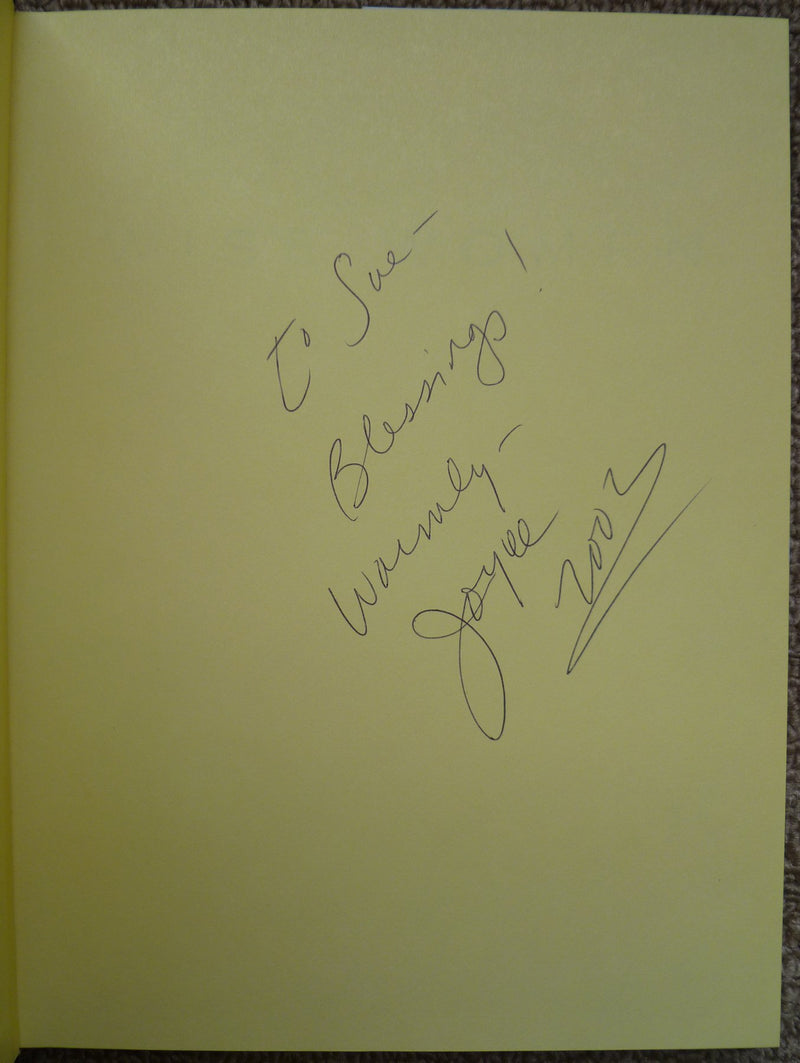 to Sue-
Blessings!
Warmly-
Joyce
2002